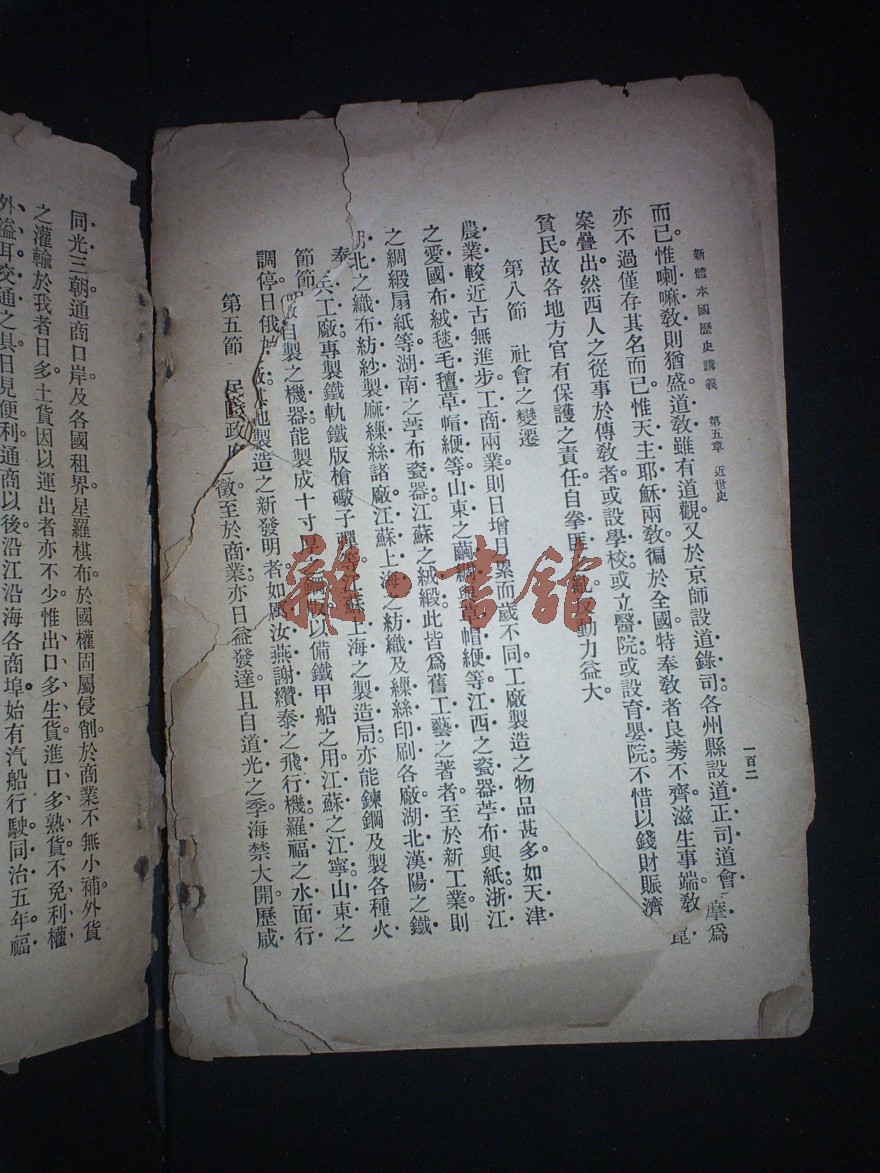 新體本國歷史講義 第五章 近世史 一百二
而已。惟喇嘛敎則猶盛。道敎雖有道觀。又於京師設道錄司。各州縣設道正司道會 摩爲
亦不過僅存其名而已。惟天主耶穌兩敎。徧於全國。特奉敎者良莠不齊。滋生事端。敎 崑
案疊出。然西人之從事於傳敎者。或設學校。或立醫院。或設育嬰院。不惜以錢財賑濟
貧民。故各地方官有保護之責任。自拳匪 動力益大。
第八節 社會之變遷
農業較近古無進步。工商兩業則日增月累而歲不同。工廠製造之物品甚多。如天津
之愛國布絨毯毛氈草帽緶等。山東之繭綢 草帽緶等。江西之瓷器苧布與紙。浙江
之綢緞扇紙等。湖南之苧布瓷器。江蘇之絨緞。此皆爲舊工藝之著者。至於新工業。則
湖北之織布紡紗製麻繅絲諸廠。江蘇上海之紡織及繅絲印刷各廠。湖北漢陽之鐵
奉 兵工廠。專製鐵軌鐵版槍礮子彈等。江蘇上海之製造局。亦能鍊鋼及製各種火
節節 廠自製之機器。能製成十寸厚之鋼版。以備鐵甲船之用。江蘇之江寧。山東之
調停日俄 其他製造之新發明者。如厲汝燕謝纘泰之飛行機。羅福之水面行
第五節 民 政府 徵。至於商業亦日益發達。且自道光之季。海禁大開。歷咸
同光三朝。通商口岸及各國租界。星羅棋布。於國權固屬侵削。於商業不無小補。外貨
之灌輸於我者日多。土貨因以運出者亦不少。惟出口多生貨。進口多熟貨。不免利權
外溢耳。交通之具。日見便利。通商以後。沿江沿海各商埠。始有汽船行駛。同治五年。福
雜·書館